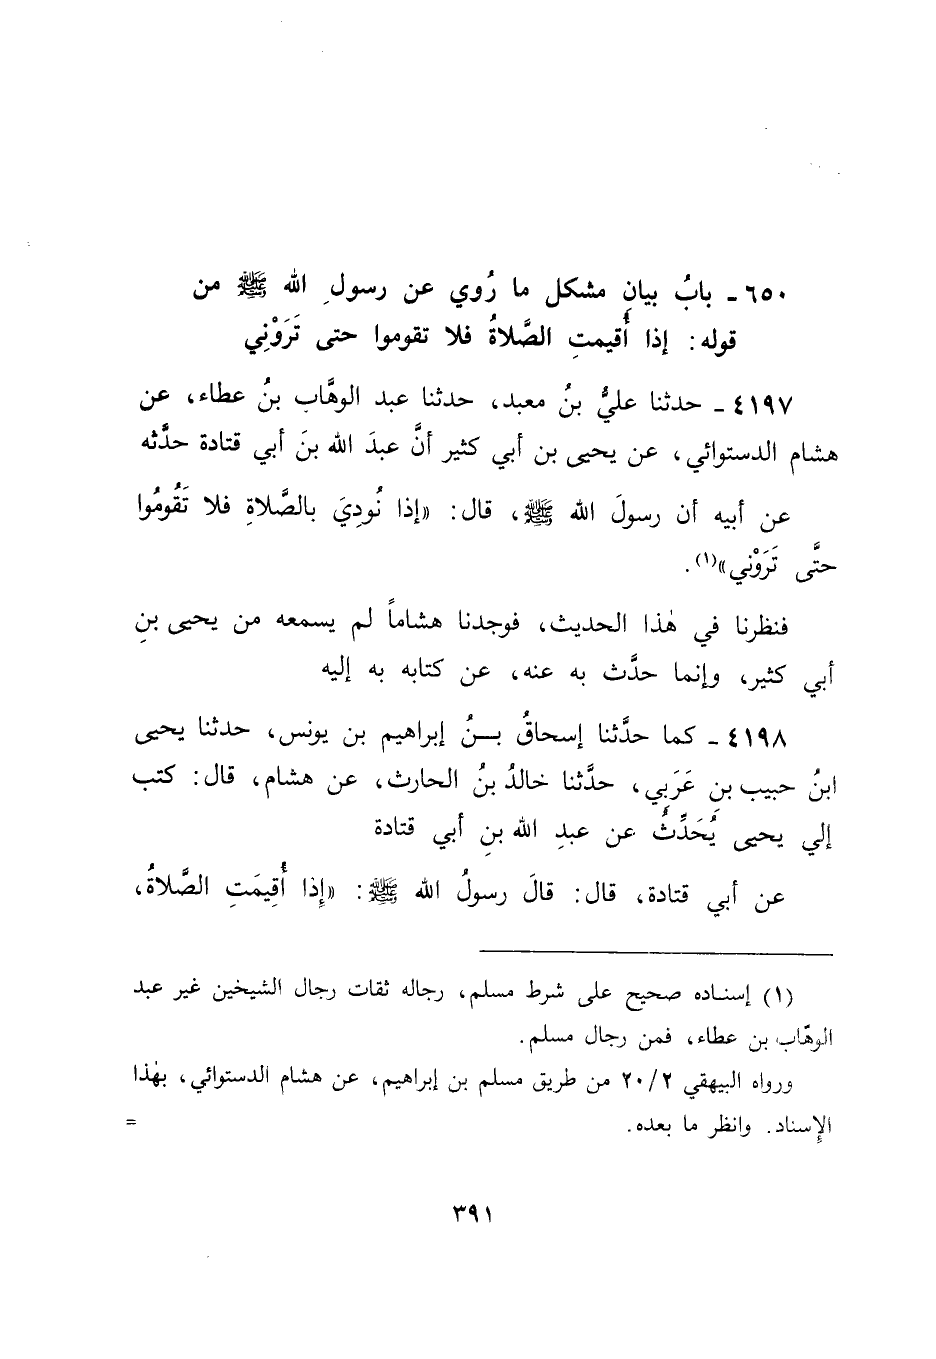 ٦٥٠ ـ بابُ بيانِ مشكل ما رُوي عن رسولِ الله ﷺ من
قوله: إذا أُقيمتِ الصَّلاةُ فلا تقوموا حتى تَرَوْنِي
٤١٩٧ ـ حدثنا عليُّ بنُ معبد، حدثنا عبد الوهَّاب بنُ عطاء، عن
هشام الدستوائي، عن يحيى بن أبي كثير أنَّ عبدَ الله بنَ أبي قتادة حدَّثه
عن أبيه أن رسولَ الله ﷺ، قال: «إذا نُودِيَ بالصَّلاةِ فلا تَقُومُوا
حتَّى تَرَوْني»(١).
فنظرنا في هٰذا الحديث، فوجدنا هشاماً لم يسمعه من يحيى بنِ
أبي كثير، وإنما حدَّث به عنه، عن كتابه به إليه
٤١٩٨ ـ كما حدَّثنا إسحاقُ بــنُ إبراهيم بن يونس، حدثنا يحيى
ابنُ حبيب بنِ عَرَبِي، حدَّثنا خالدُ بنُ الحارث، عن هشام، قال: كتب
إلي يحيى يُحَدِّثُ عن عبدِ الله بنِ أبي قتادة
عن أبي قتادة، قال: قالَ رسولُ الله ﷺ: «إِذا أُقِيمَتِ الصَّلاةُ،
(١) إسناده صحيح على شرط مسلم، رجاله ثقات رجال الشيخين غير عبد
الوهَّاب بن عطاء، فمن رجال مسلم.
ورواه البيهقي ٢٠/٢ من طريق مسلم بن إبراهيم، عن هشام الدستوائي، بهٰذا
الإِسناد. وانظر ما بعده. =
٣٩١